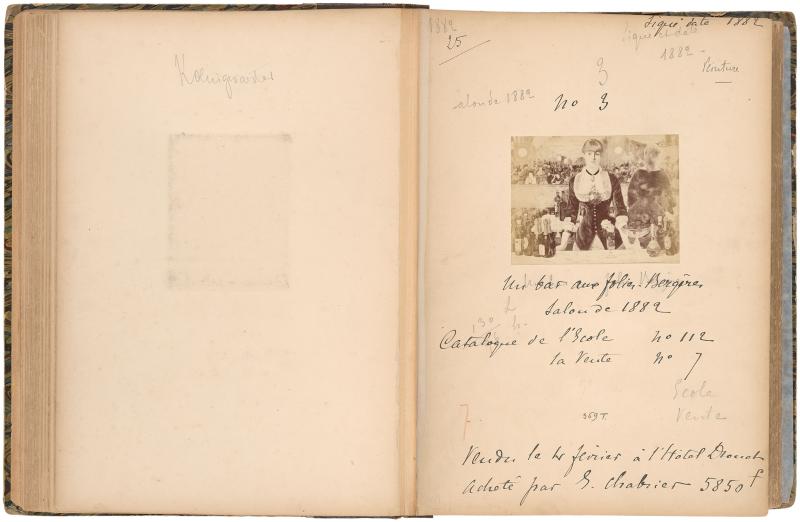 Kœnigswarter
1882
25
Signé date 1882
Signé et date
1882 -
Peinture
3
Salon de 1882
no 3
Un bar aux folies-Bergères
Salon de 1882
Catalogue de l'Ecole no 112
la Vente no 7
Ecole
7. Vente
369 T.
Vendu le 4 février à l'Hôtel Drouot
acheté par E. Chabrier 5850 f